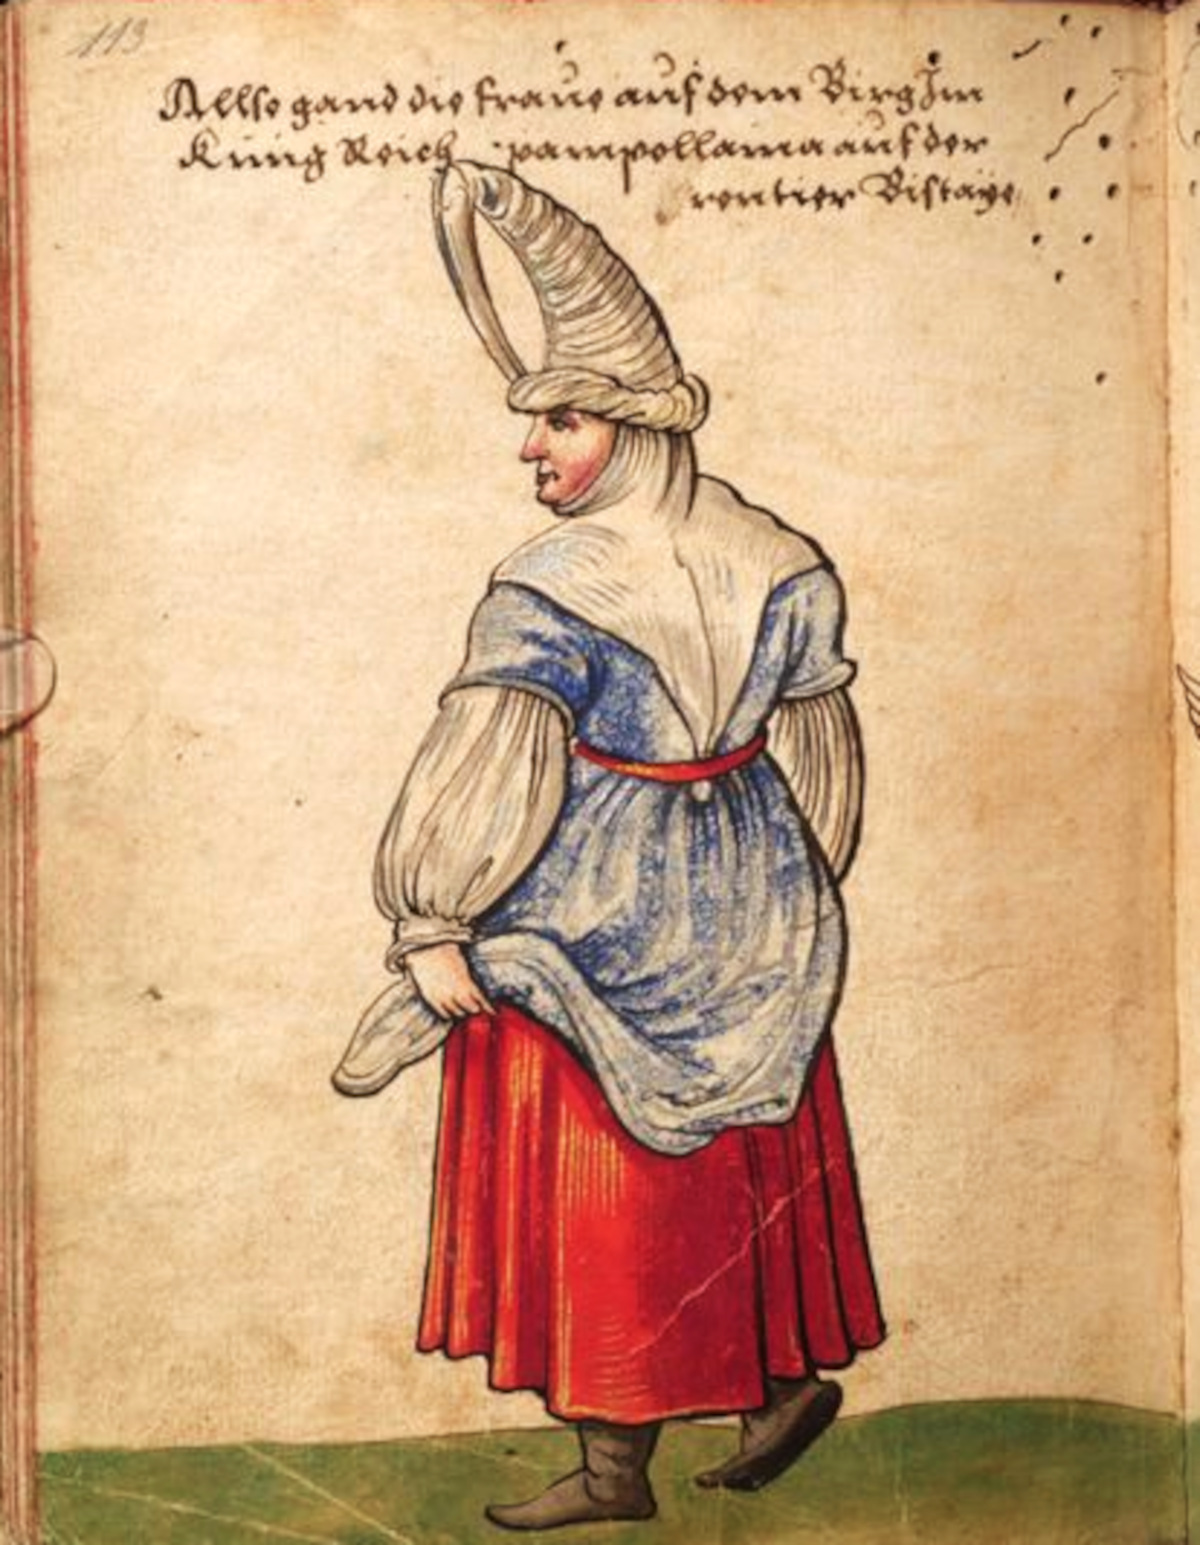 113
Allso gand die fraue auf dem Birg Im
Küing Reich pampollama auf der
rontier Biscaÿe